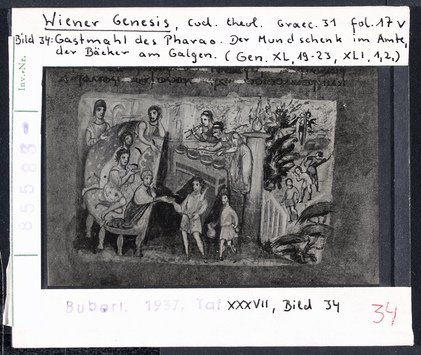 Wiener Genesis, Cod. theol. Graec. 31 fol. 17 v
Bild 34: Gastmahl des Pharao. Der Mundschenk im Amte,
der Bäcker am Galgen. (Gen. XL, 19-23, XLI, 1,2,)
Inv.-Nr.
85583
Buberl, 1937, Taf XXXVII, Bild 34
34